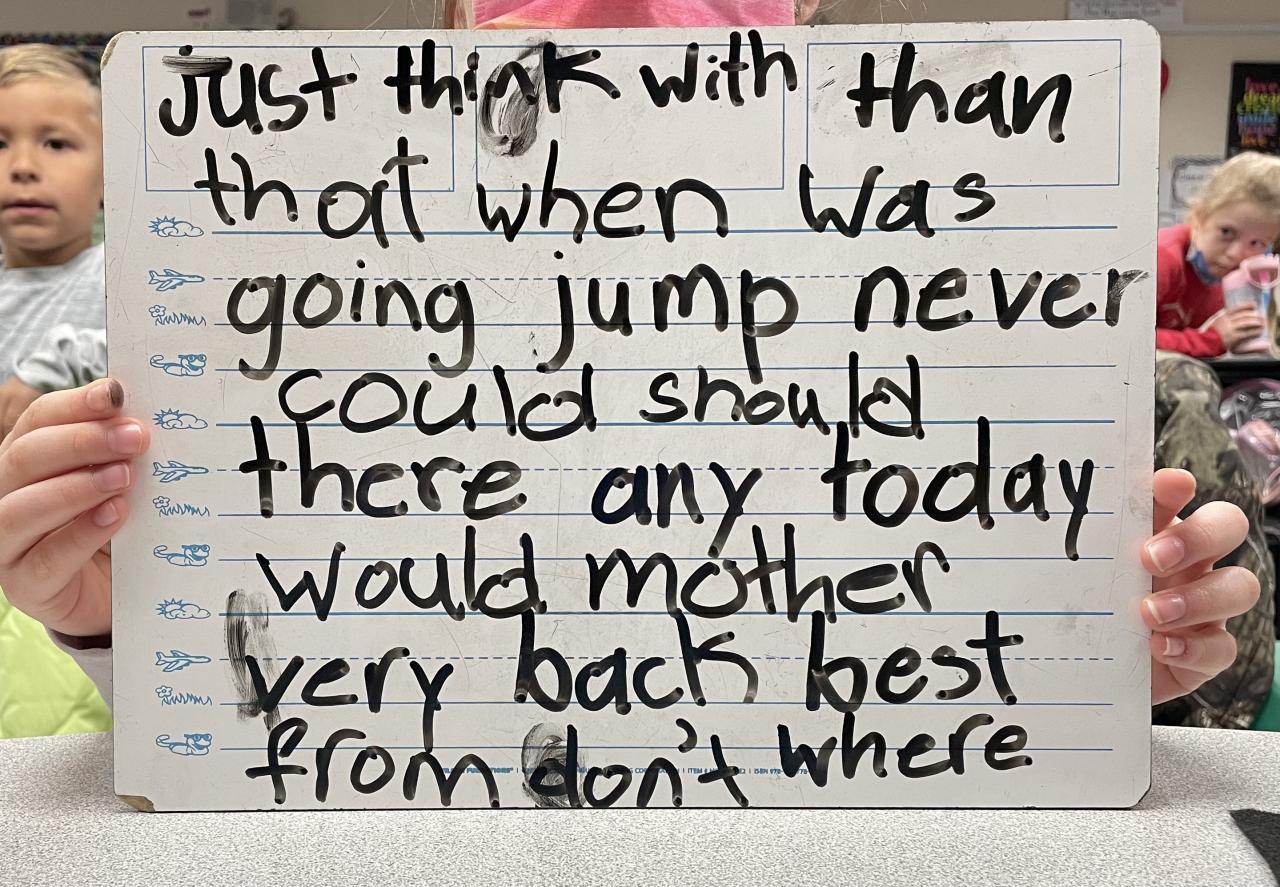 just think with than
that when was
going jump never
could should
there any today
would mother
very back best
from don't where